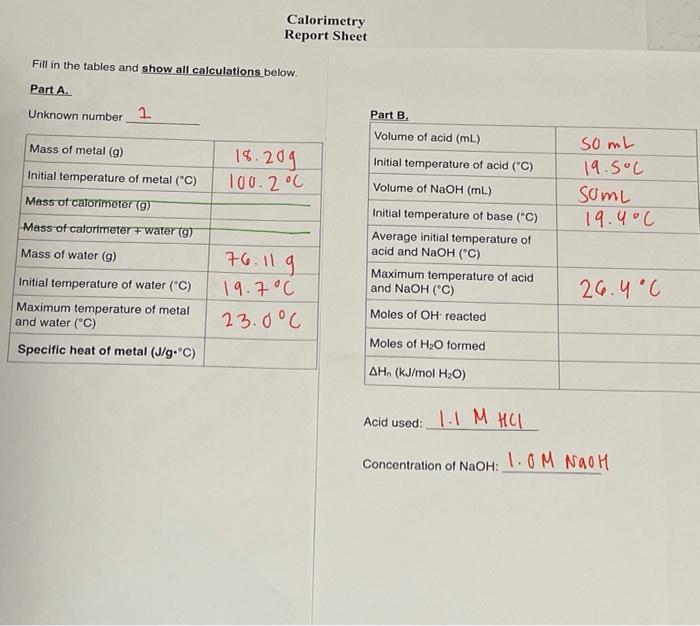 Calorimetry
Report Sheet
Fill in the tables and show all calculations below.
Part A.
Unknown number 1
Mass of metal (g) 18.20g
Initial temperature of metal (°C) 100.2°C
Mass of calorimeter (g)
Mass of calorimeter + water (g)
Mass of water (g) 76.11 g
Initial temperature of water (°C) 19.7°C
Maximum temperature of metal
and water (°C) 23.0°C
Specific heat of metal (J/g•°C)
Part B.
Volume of acid (mL) 50 mL
Initial temperature of acid (°C) 19.5°C
Volume of NaOH (mL) 50mL
Initial temperature of base (°C) 19.4°C
Average initial temperature of
acid and NaOH (°C)
Maximum temperature of acid
and NaOH (°C) 26.4°C
Moles of OH- reacted
Moles of H₂O formed
ΔHn (kJ/mol H₂O)
Acid used: 1.1 M HCl
Concentration of NaOH: 1.0M NaOH